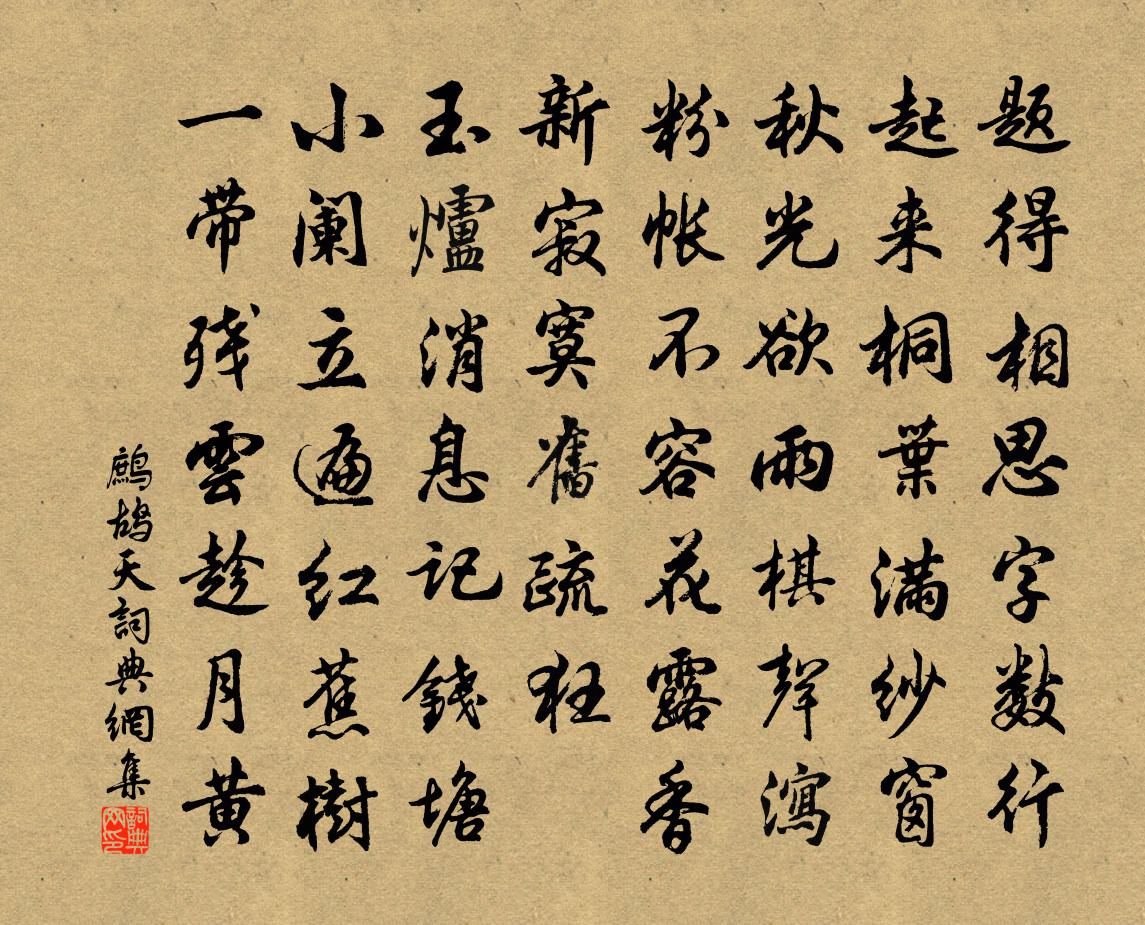 题得相思字数行
起来桐葉满纱窗
秋光欲雨棋聲瀉
粉帐不容花露香
新寂寞舊疏狂
玉爐消息记錢塘
小阑立遍红蕉樹
一带残雲趁月黄
鷓鸪天詞典網集
詞典网印